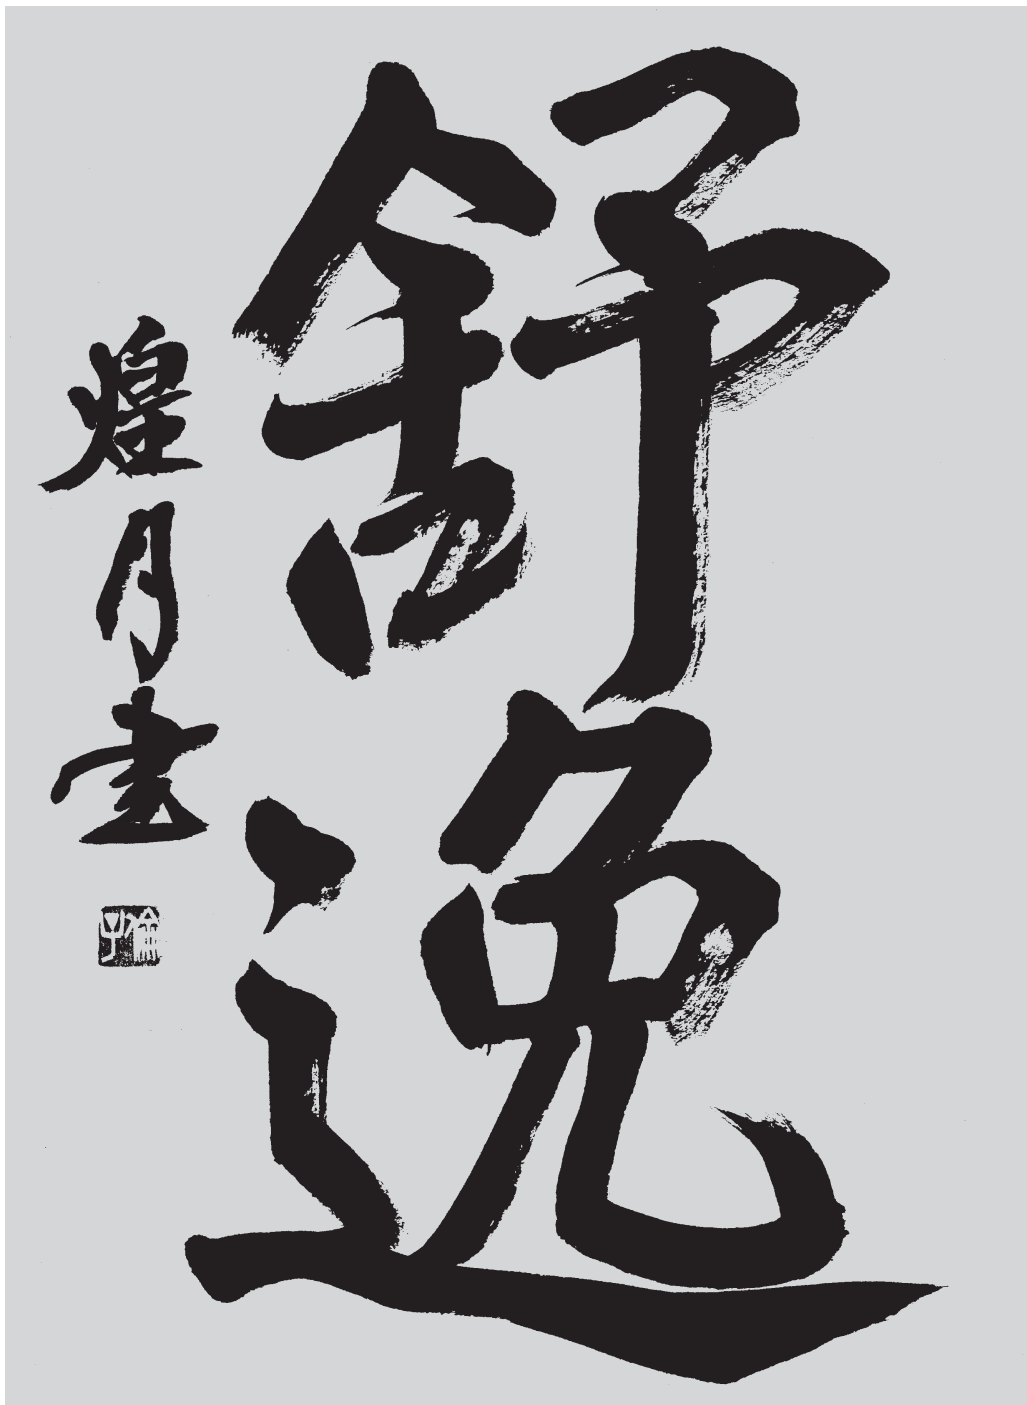 舒逸
煌月書